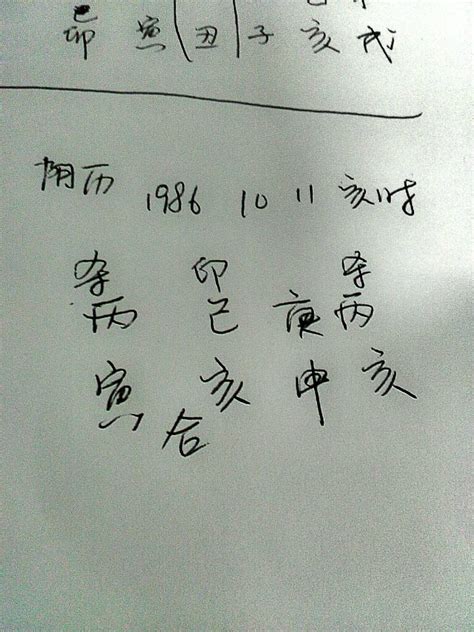 卯 寅 丑 子 亥 戌
阴历 1986 10 11 亥时
杀 印 杀
丙 己 庚 丙
寅 亥 申 亥
合